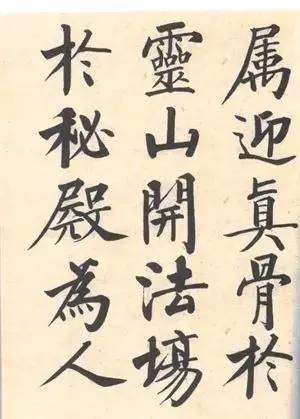 属迎真骨於
靈山開法場
於秘殿為人